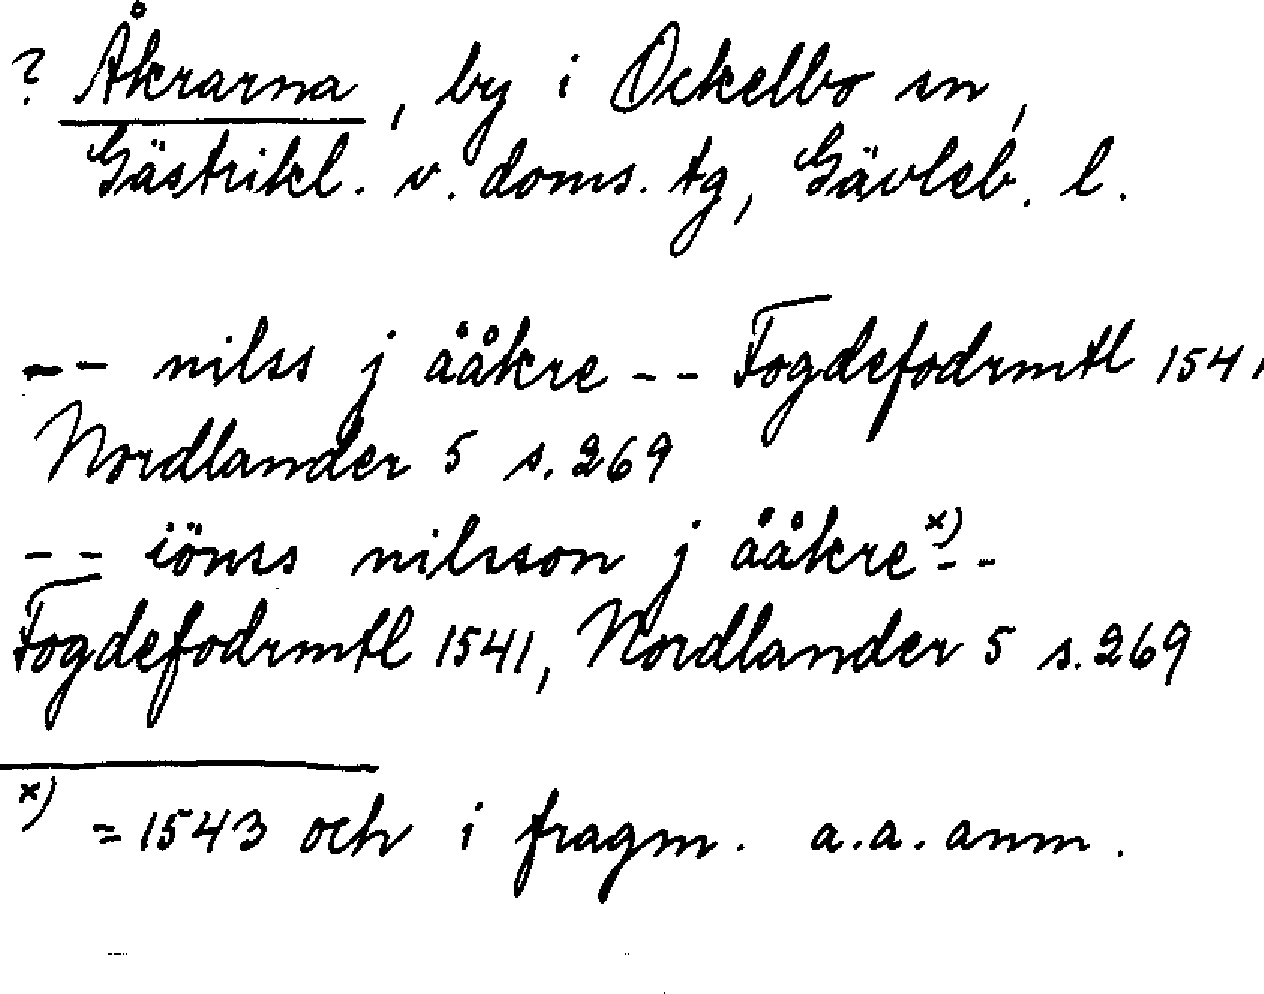 ? Åkrarna, by i Ockelbo sn,
Gästrikl. v. doms. tg, Gävleb. l.
-- nilss j ååkre -- Fogdefodrmtl 1541
Nordlander 5 s. 269
-- iönss nilsson j ååkre x) --
Fogdefodrmtl 1541, Nordlander 5 s. 269
x) = 1543 och i fragm. a.a. anm.